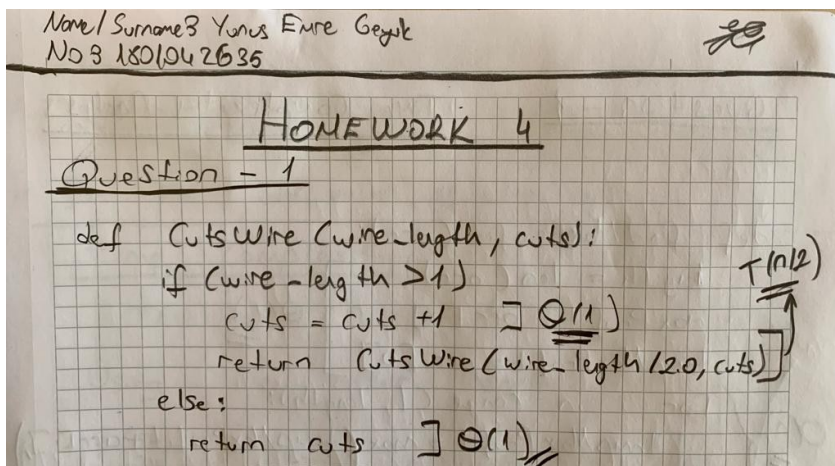 Name/Surname: Yunus Emre Geyik
No: 1801042635
HOMEWORK 4
Question - 1
def CutsWire (wire_length, cuts):
if (wire_length >1)
T(n/2)
cuts = cuts +1 ] Θ(1)
return CutsWire (wire_length /2.0, cuts)]
else:
return cuts ] Θ(1)